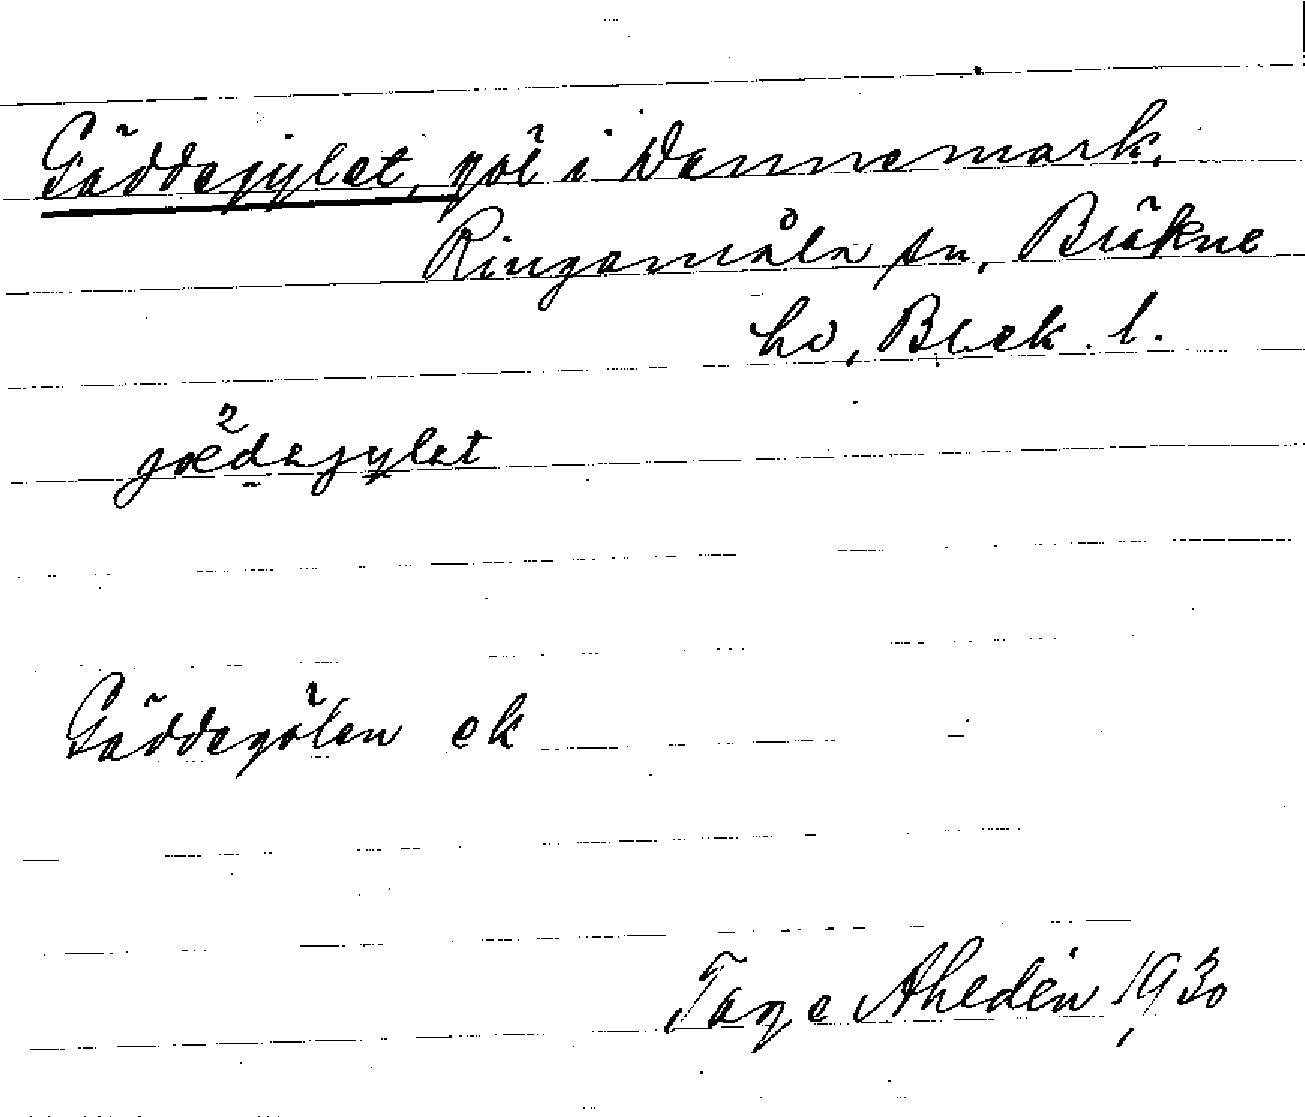 Gäddejylet, göl i Dannemark.
Ringamåla sn, Bräkne
hd, Blek. l.
gædejylet
Gäddegölen ek
Tage Ahldén 1930